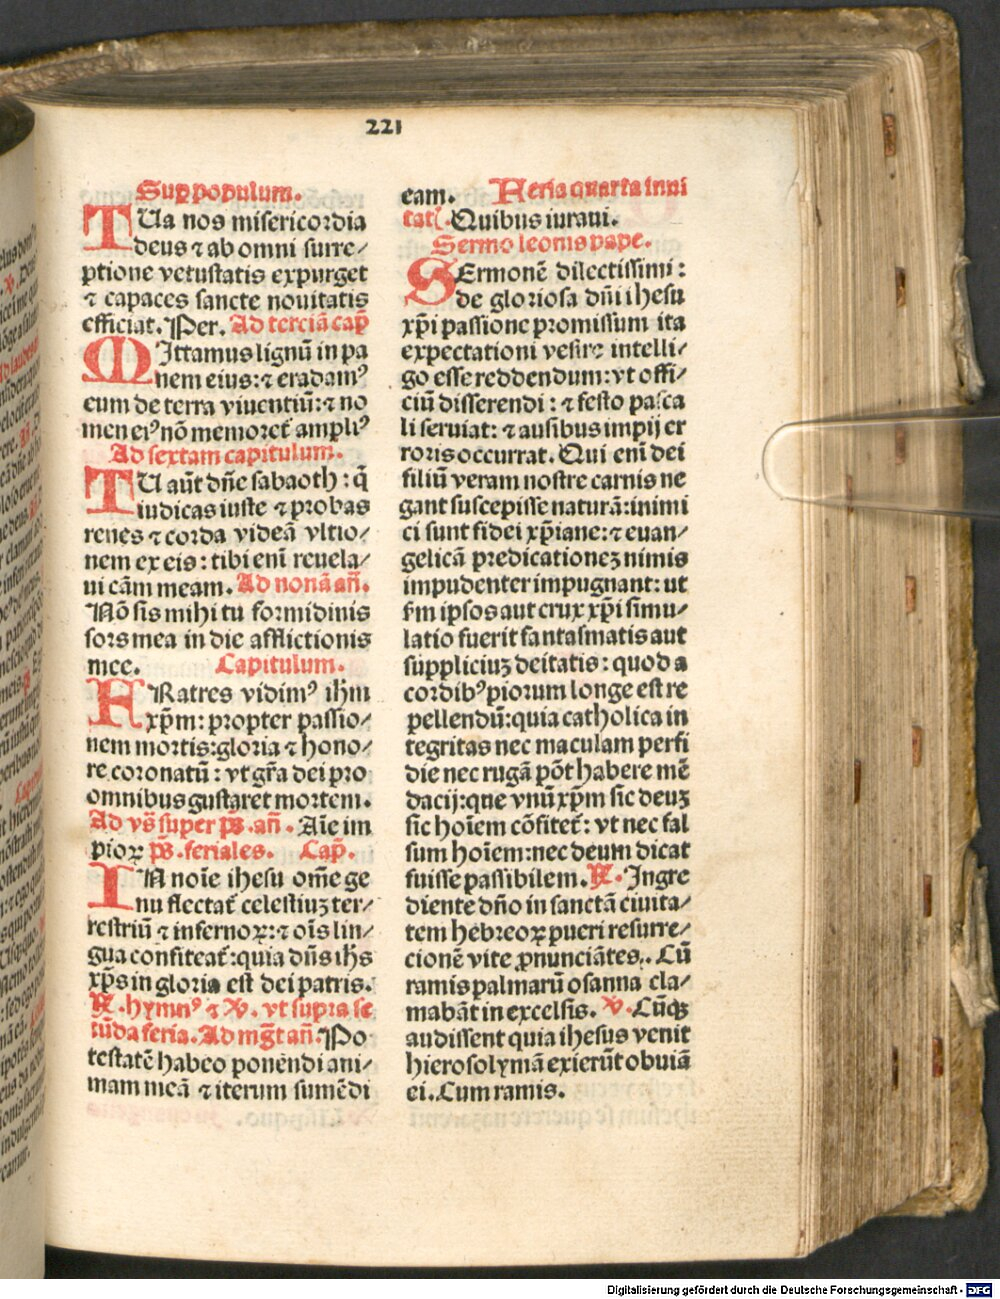 221
Sup populum.
TUa nos misericordia
deus ⁊ ab omni surre/
ptione vetustatis expurget
⁊ capaces sancte nouitatis
efficiat. Per. Ad terciā cap̄
MIttamus lignū in pa
nem eius: ⁊ eradamꝰ
eum de terra viuentiū: ⁊ no
men eiꝰ nō memoret̄ ampliꝰ
Ad sextam capitulum.
TU aūt dn̄e sabaoth: q̄
iudicas iuste ⁊ probas
renes ⁊ corda videā vltio/
nem ex eis: tibi enī reuela/
ui cām meam. Ad nonā an̄.
Nō sis mihi tu formidinis
spes mea in die afflictionis
mee. Capitulum.
FRatres vidimꝰ ihm
xp̄m: propter passio/
nem mortis: gloria ⁊ hono/
re coronatū: vt gr̄a dei pro
omnibus gustaret mortem.
Ad vs̄ super ps̄. an̄. Aīe im
pioꝝ ps̄. feriales. Cap̄.
IN noīe ihesu om̄e ge
nu flectat̄ celestiuꝫ ter/
restriū ⁊ infernoꝝ: ⁊ oīs lin/
gua confiteat̄: quia dn̄s ihs
xp̄s in gloria est dei patris.
℟. hymnꝰ ⁊ ℣. vt supra se
cūda feria. Ad mg̅t an̄. Po
testatē habeo ponendi ani/
mam meā ⁊ iterum sumēdi
eam. Feria quarta inui
tat̄. Quibus iuraui.
Sermo leonis pape.
SErmonē dilectissimi:
de gloriosa dn̄i ihesu
xp̄i passione promissum ita
expectationi vestre intelli/
go esse reddendum: vt offi/
ciū disserendi: ⁊ festo pasca
li seruiat: ⁊ ausibus impij er
roris occurrat. Qui enī dei
filiū veram nostre carnis ne
gant suscepisse naturā: inimi
ci sunt fidei xp̄iane: ⁊ euan/
gelicā predicationeꝫ nimis
impudenter impugnant: ut
fm ipsos aut crux xp̄i simu/
latio fuerit fantasmatis aut
suppliciuꝫ deitatis: quod a
cordibꝰ piorum longe est re
pellendū: quia catholica in
tegritas nec maculam perfi
die nec rugā pōt habere mē
dacij: que vnū xp̄m sic deuꝫ
sic hoīem cōfitet̄: vt nec fal
sum hoīem: nec deum dicat
fuisse passibilem. ℟. Ingre
diente dn̄o in sanctā ciuita/
tem hebreoꝝ pueri resurre/
cionē vite ꝓnunciātes.. Cū
ramis palmarū osanna cla/
mabāt in excelsis. ℣. Cūqꝫ
audissent quia ihesus venit
hierosolymā exierūt obuiā
ei. Cum ramis.
Digitalisierung gefördert durch die Deutsche Forschungsgemeinschaft - DFG